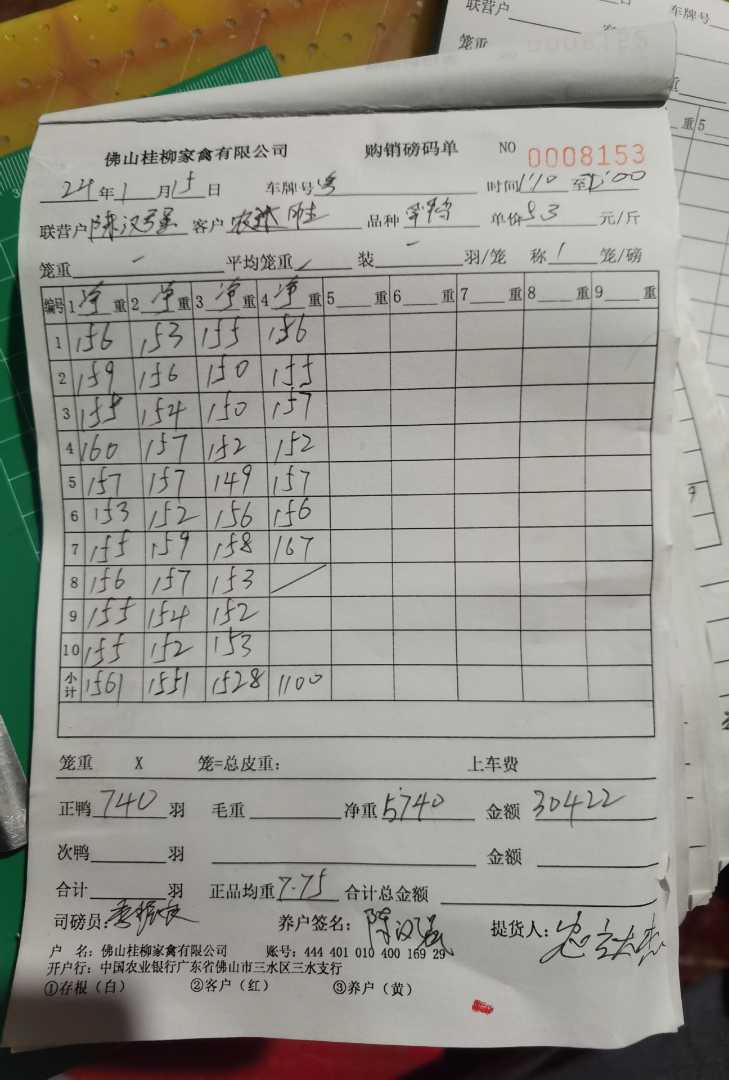 联营户
车牌号
笼重
佛山桂柳家禽有限公司 购销磅码单 NO 0008153
24年1月15日 车牌号 时间1:10 至2:00
联营户陈汉强 客户 品种 单价5.3元/斤
笼重 - 平均笼重 装 - 羽/笼 称 1 笼/磅
编号 1净重 2净重 3净重 4净重 5 重 6 重 7 重 8 重 9 重
1 156 153 155 156
2 159 156 150 155
3 155 154 150 157
4 160 157 152 152
5 157 157 149 157
6 153 152 156 156
7 155 159 158 167
8 156 157 153
9 155 154 152
10 155 152 153
小计 1561 1551 1528 1100
笼重 X 笼=总皮重: 上车费
正鸭 740 羽 毛重 净重 5740 金额 30422
次鸭 羽 金额
合计 羽 正品均重 7.75 合计总金额
司磅员: 养户签名: 陈汉强 提货人:
户 名: 佛山桂柳家禽有限公司 账号: 444 401 010 400 169 29
开户行: 中国农业银行广东省佛山市三水区三水支行
①存根(白) ②客户(红) ③养户(黄)